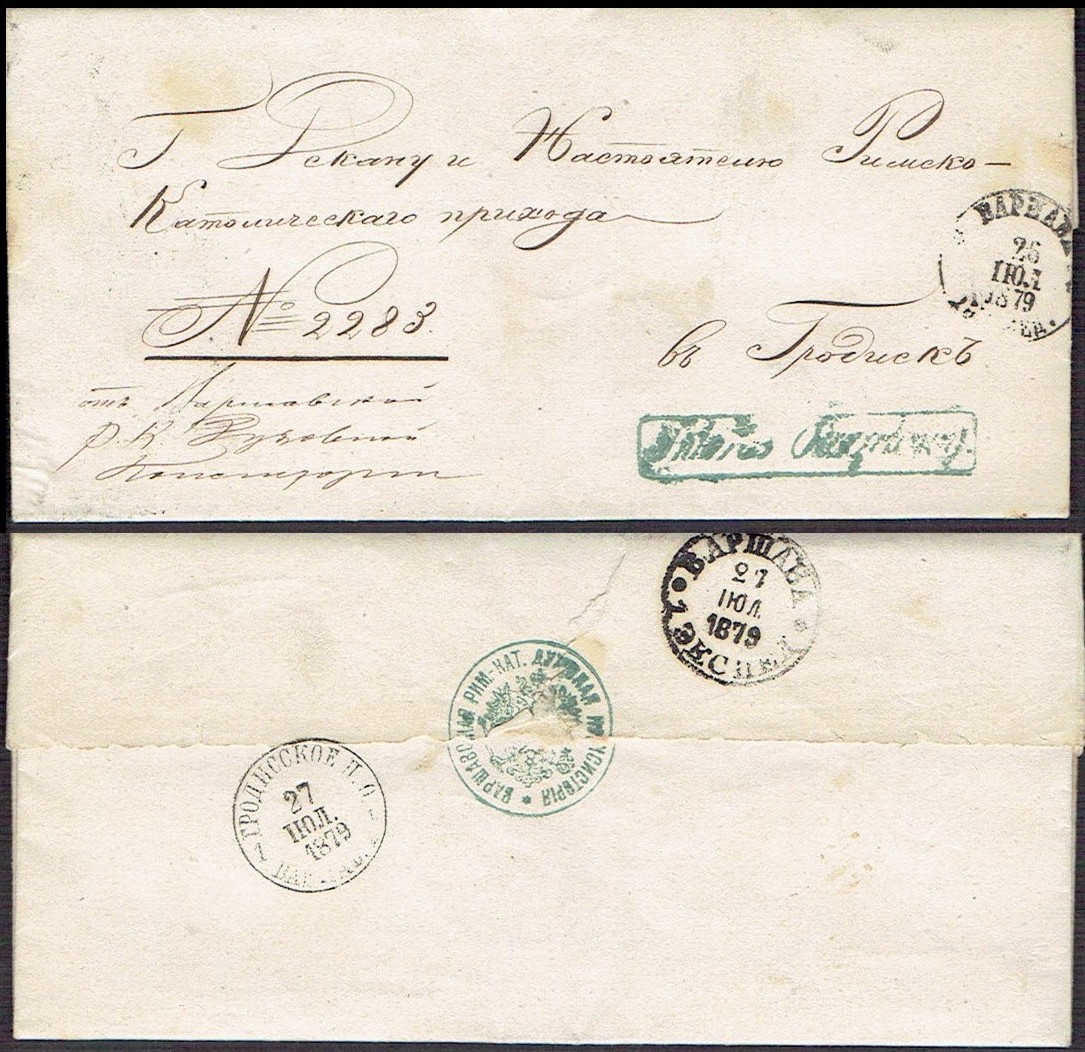 Г. Декану и Настоятелю Римско-
Католическаго прихода
№ 2283.
въ Гродискъ
отъ Варшавской
Р. К. Духовной
Консисторіи
ВАРШАВА
26
ІЮЛ
1879
ВАРШАВА
27
ІЮЛ.
1879
1 ЭКСПЕД
ВАРШАВСКАЯ РИМ-КАТ. ДУХОВНАЯ КОНСИСТОРІЯ
ГРОДИССКОЕ П. О.
27
ІЮЛ.
1879